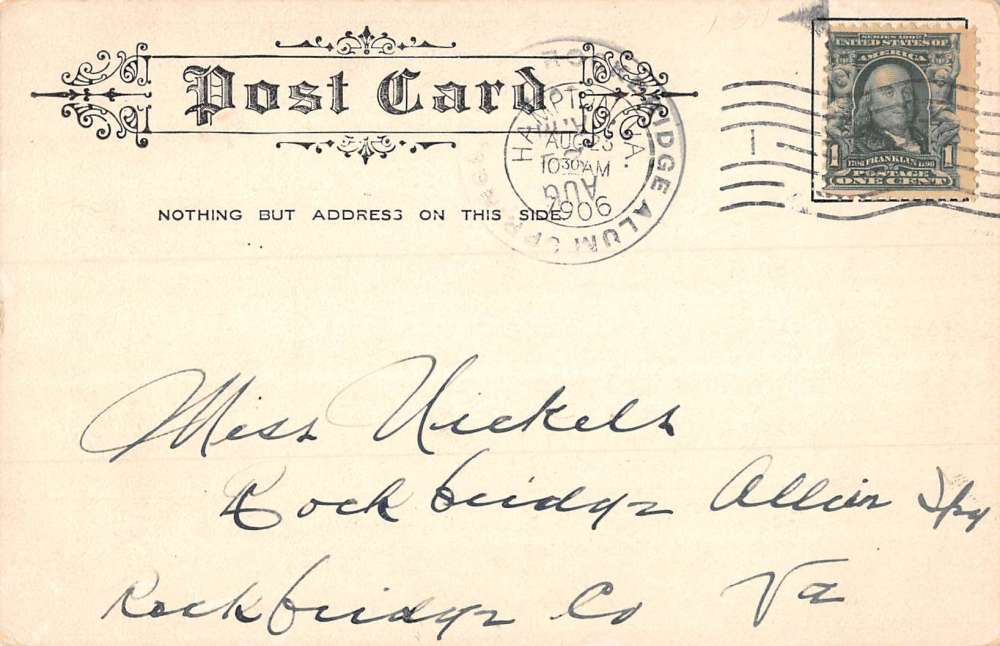 Post Card
NOTHING BUT ADDRESS ON THIS SIDE.
HAMPTON VA.
AUG 23
10 30 AM
1906
ROCKBRIDGE ALUM SPRINGS
AUG
1
SERIES 1902
UNITED STATES OF
AMERICA
1706 FRANKLIN 1790
1 POSTAGE 1
ONE CENT
Miss Nickels
Rockbridge Allum Spg
Rockbridge Co Va